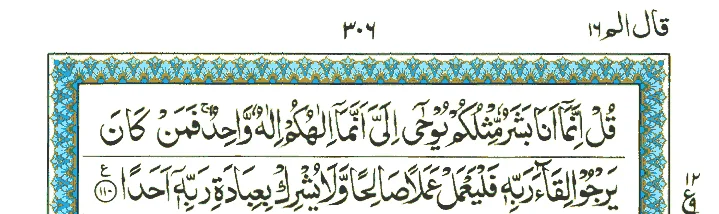 قال الم ١٦ ٣٠٦
قُلْ اِنَّمَآ اَنَا بَشَرٌ مِّثْلُكُمْ يُوْحٰٓى اِلَيَّ اَنَّمَآ اِلٰهُكُمْ اِلٰهٌ وَّاحِدٌ ۚ فَمَنْ كَانَ
يَرْجُوْا لِقَآءَ رَبِّهٖ فَلْيَعْمَلْ عَمَلًا صَالِحًا وَّلَا يُشْرِكْ بِعِبَادَةِ رَبِّهٖٓ اَحَدًا ۧ ١١٠
١٢
ع